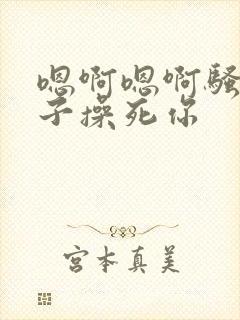 嗯啊嗯啊骚
子操死你
宫本真美